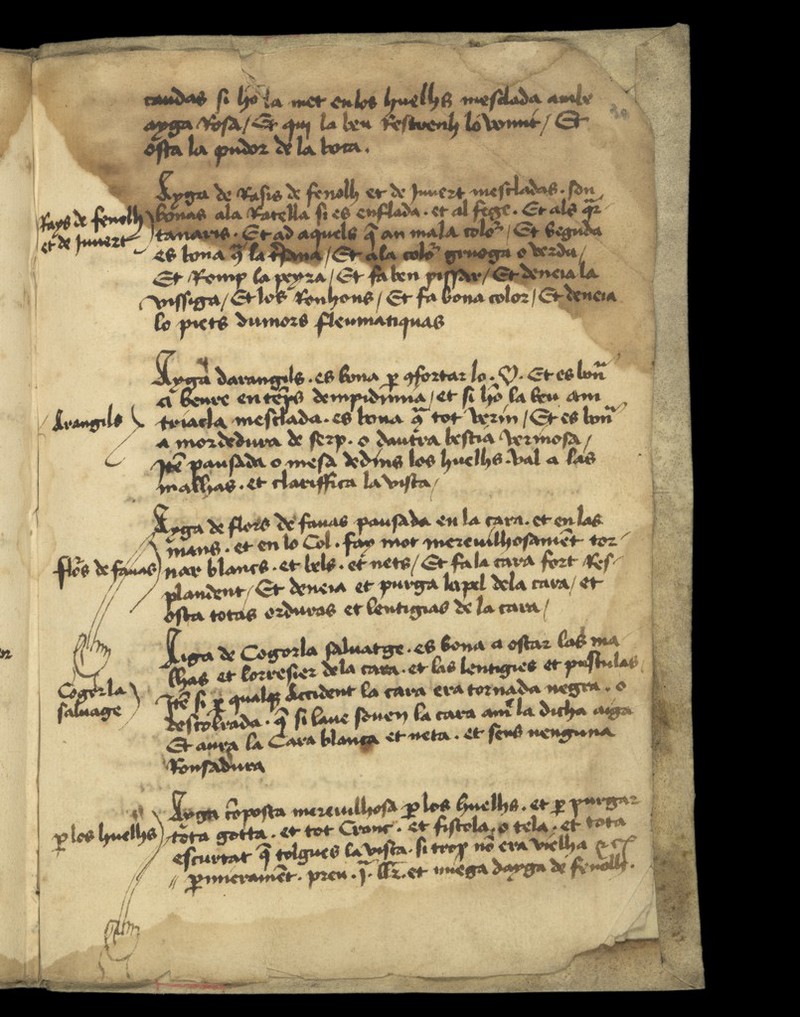 caudas si ho la met en los huelhs mesclada amb
ayga Rosa / Et qui la beu Restrenh lo vomit / Et
osta la pudor de la boca.
Rays de fenolh
et de Juvert
Ayga de Rasis de fenolh et de Juvert mescladas. son
bonas a la Ratella si es enflada. et al fege. Et als qr̄
tanaris. Et ad aquels q̄ an mala colo᷑ / Et seguda
es bona q̄ la / Et a la colo᷑ gruoga o verdu /
Et Romp la peyra / Et fa ben pissar / Et deneia la
vissiga / Et los Ronhons / Et fa bona color / Et deneia
lo piets dumors fleumatiquas
Arangils
Ayga darangils. es bona ꝑ ꝯfortar lo. Et es bon̄
a beure en tēps dempidimia / et si hō la beu am
triacla mesclada. es bona q̄ tot verin / Et es bon̄
a mordedura de serp. o dautra bestia vermosa /
Itē pausada o mesa dedins los huelhs. val a las
malhas. et clariffica la vista /
flōs de favas
Ayga de flors de favas pausada en la cara. et en las
mans. et en lo Col. fay mot merevilhosamēt tor-
nar blancs. et bels. et nets / Et fa la cara fort Res-
plandent / Et deneia et purga la pel de la cara / et
osta totas orduras et lentigias de la cara /
Cogorla
salvage
Aiga de Cogorla salvatge. es bona a ostar las ma
lhas et lorresier de la cara. et las lentigies et pustulas
Itē si ꝑ qualq̄ Accident la cara era tornada negra. o
descolrada. q̄ si lave soven la cara am̄ la dicha aiga
Et aura la Cara blanca et neta. et sens nenguna
Ronsadura
ꝑ los huelhs
Ayga cōposta merevilhosa ꝑ los huelhs. et ꝑ purgar
tota gotta. et tot Cranc. et fistola. o tela. et tota
escurtat q̄ tolgues la vista. si trop no era vielha
ꝑmierament. preu. j. et miega dayga de fenolh.